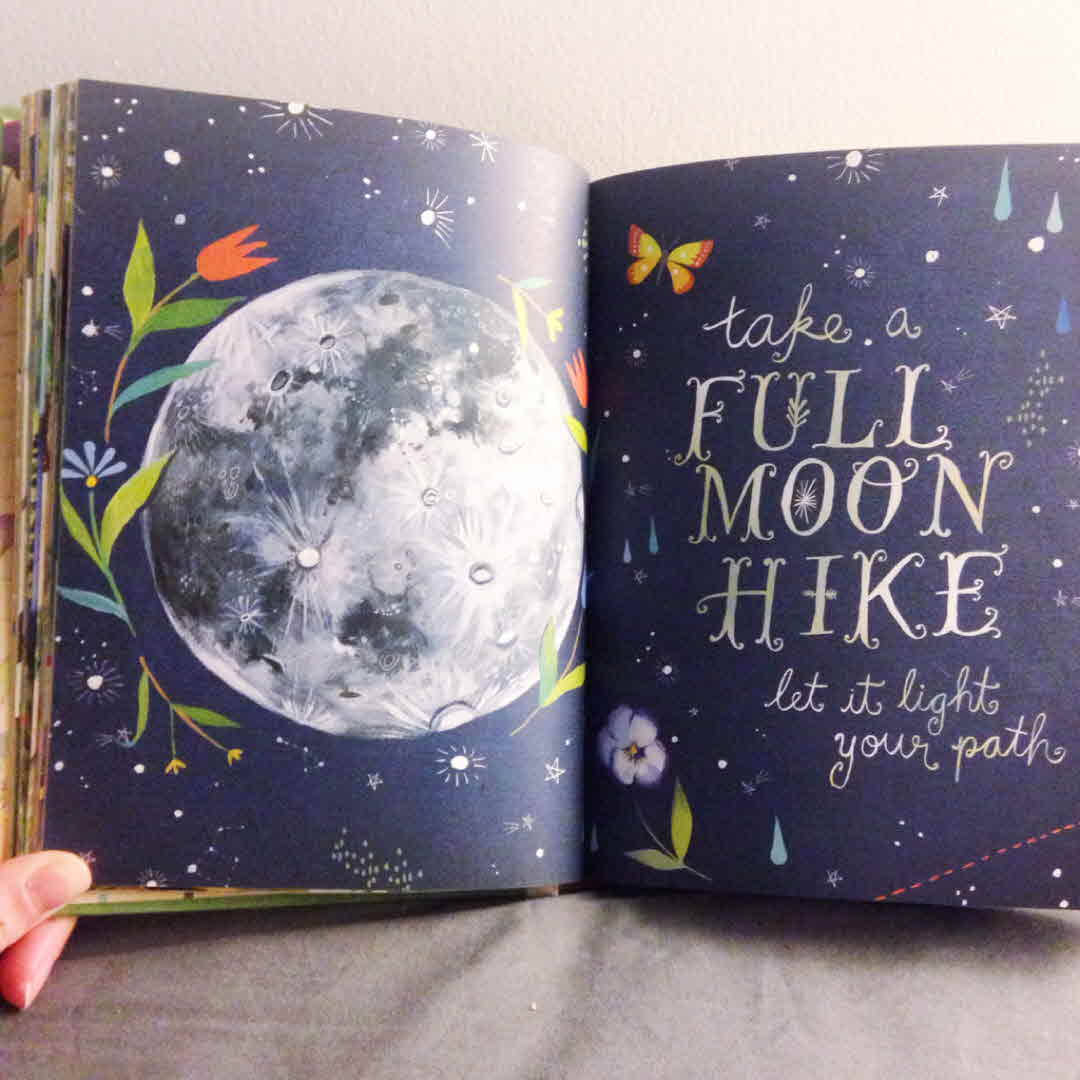 take a
FULL
MOON
HIKE
let it light
your path